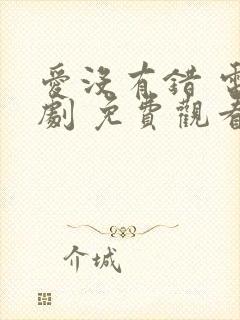 愛沒有錯 電
劇 免費觀看
介城